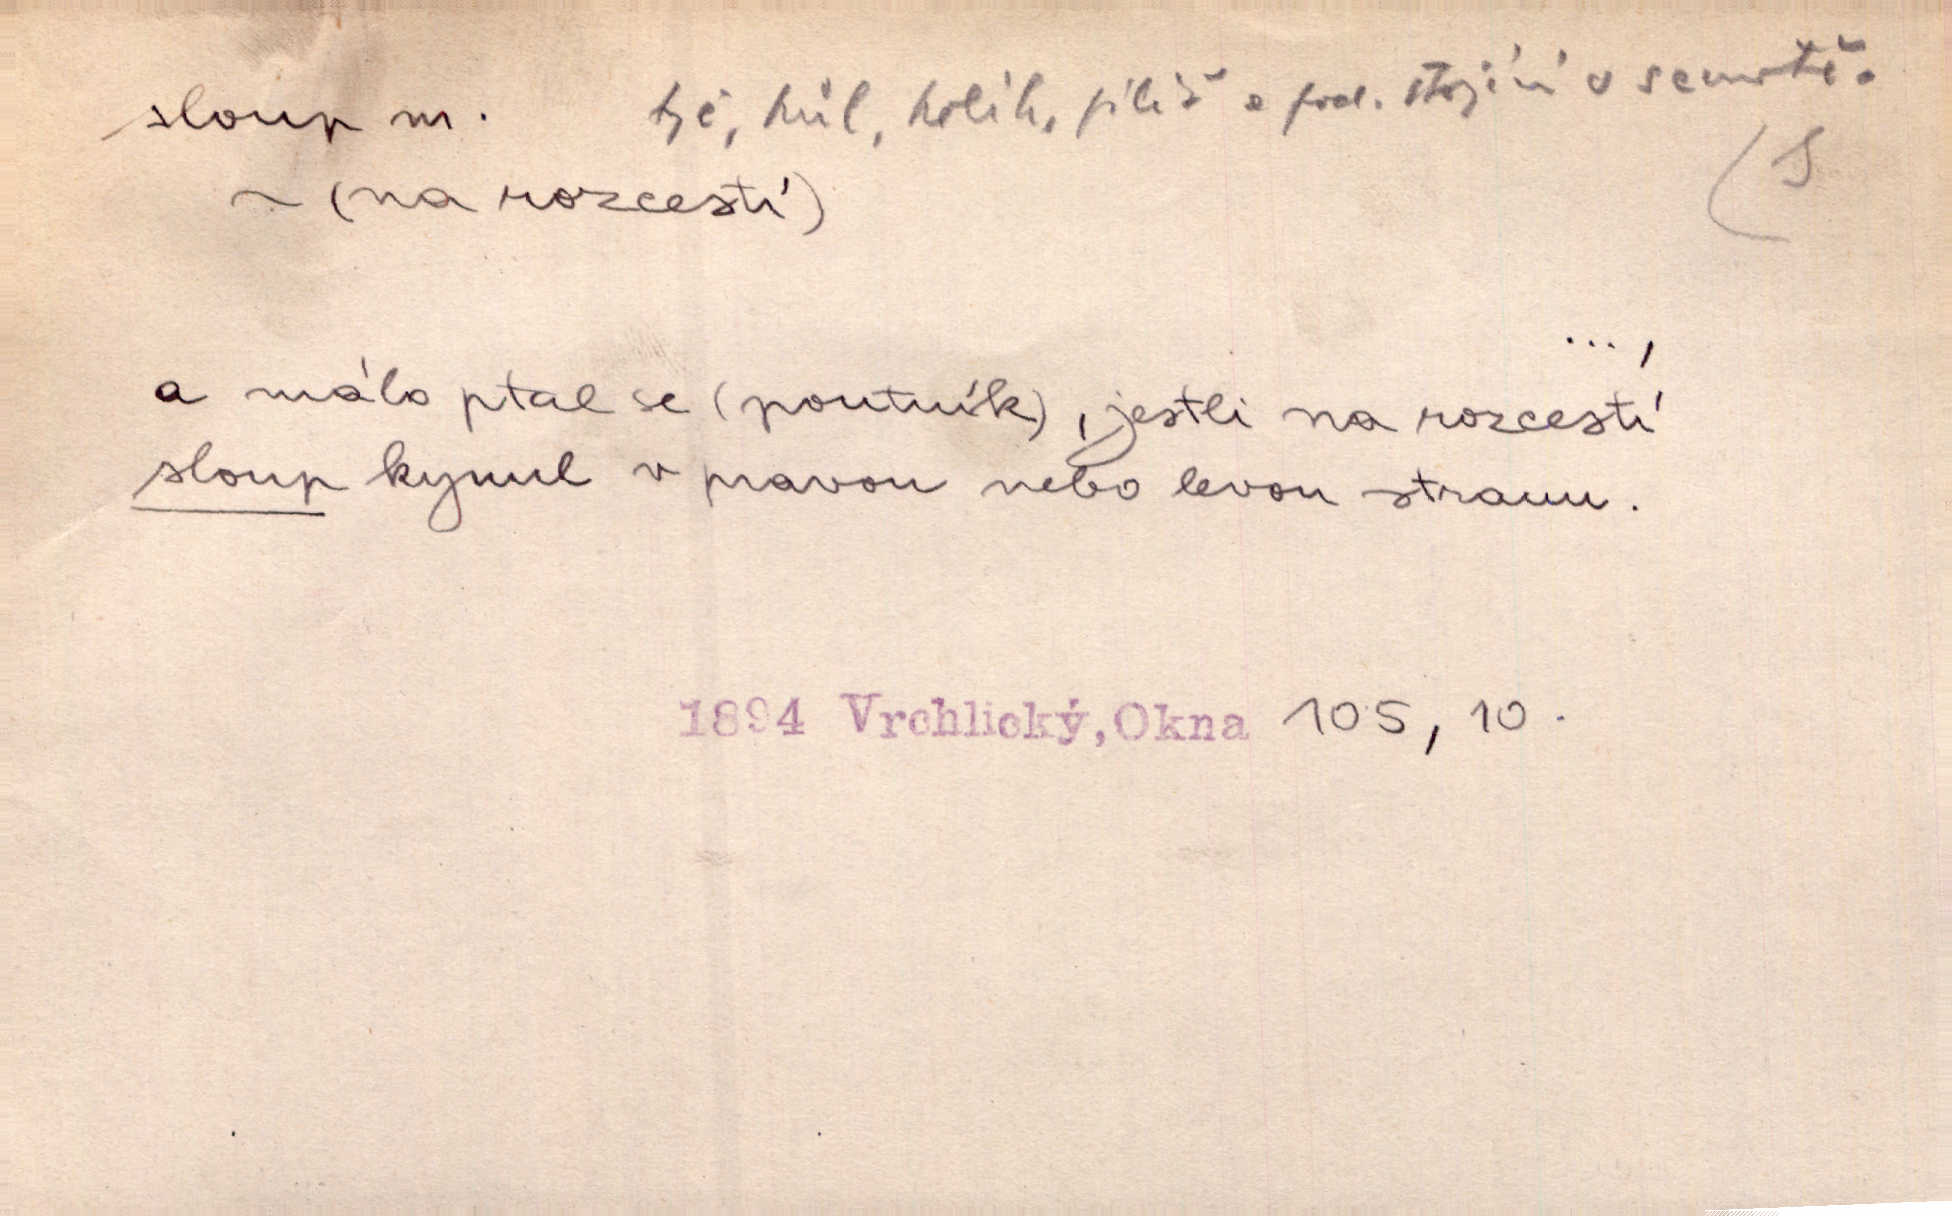 sloup m. tyč, kůl, kolík, piliř a pod. stojící v
(S
~ (na rozcestí)
...,
a málo ptal se (poutník), jestli na rozcestí
sloup kynul v pravou nebo levou stranu.
1894 Vrchlický, Okna 105, 10.